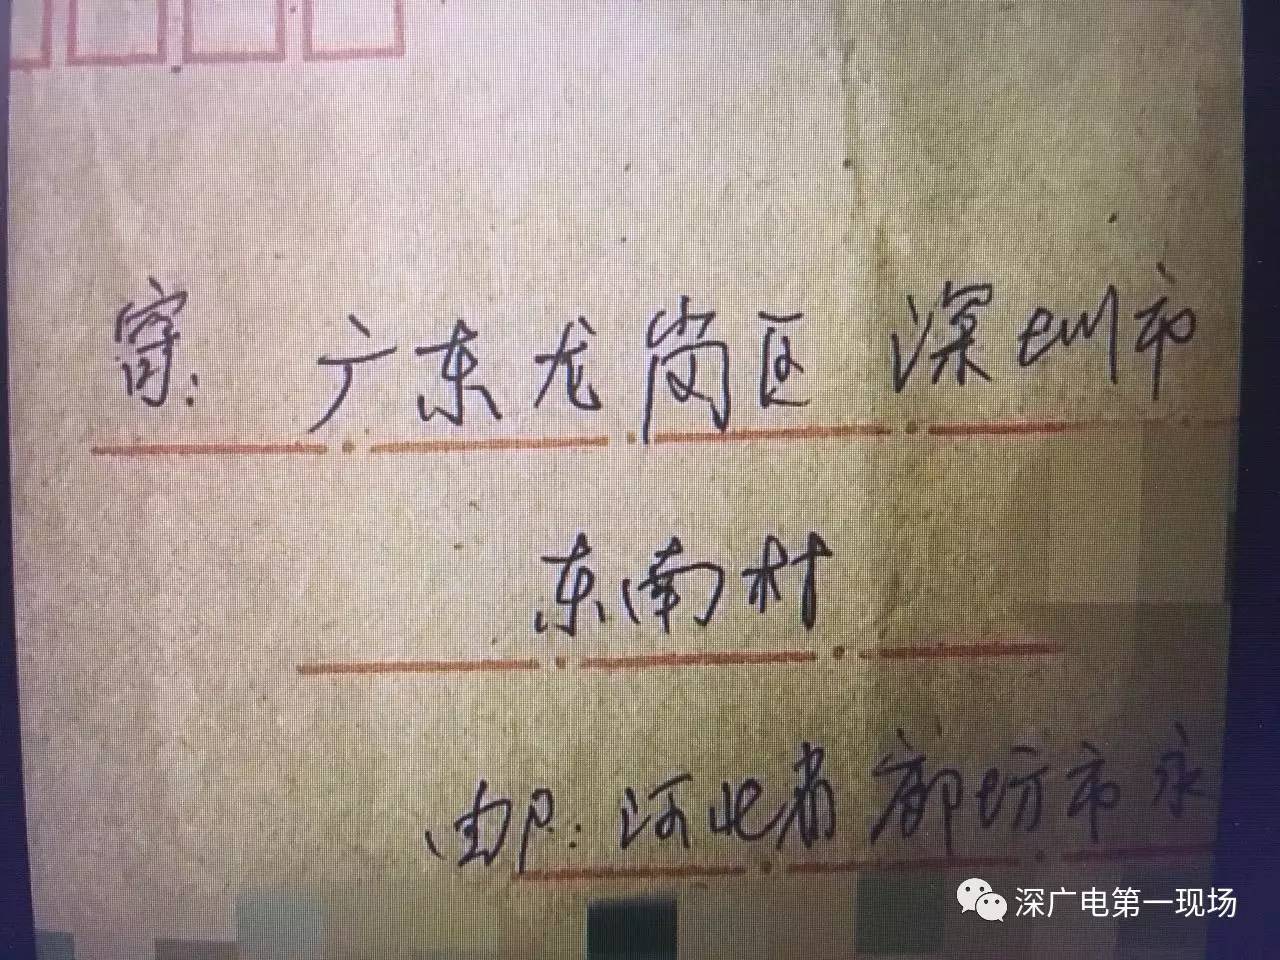 寄: 广东龙岗区 深圳市
东南村
邮: 河北省廊坊市永
深广电第一现场